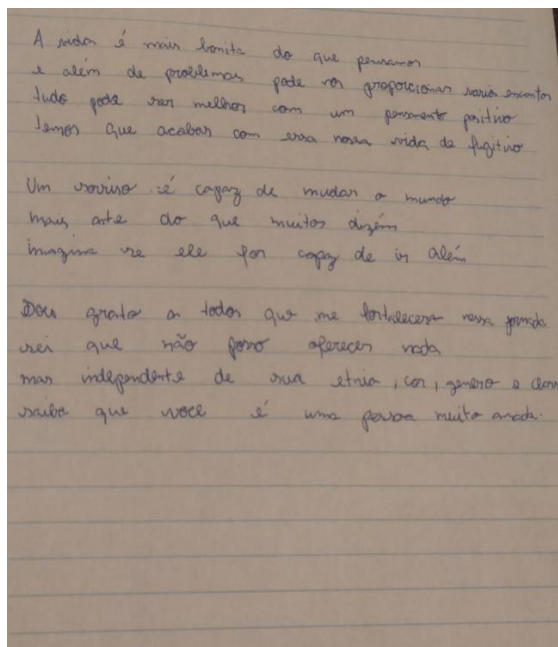 A vida é mais bonita do que pensamos
e além de problemas pode nos proporcionar varios encantos
tudo pode ser melhor com um pensamento positivo
temos que acabar com essa nossa vida de fugitivo
Um sorriso é capaz de mudar o mundo
mais arte do que muitos dizem
imagina se ele for capaz de ir além
Sou grato a todos que me fortalecem nessa jornada
sei que não posso oferecer nada
mas independente de sua etnia, cor, genero e
saiba que você é uma pessoa muito amada.